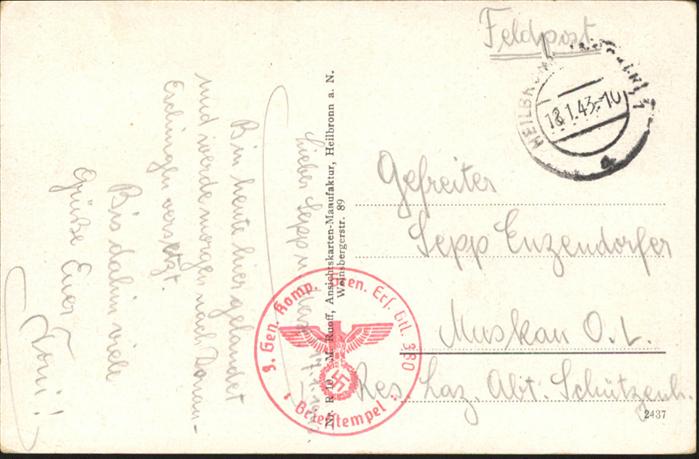 Feldpost
HEILBRONN
18.1.43.-10
Gefreiter
Sepp Enzendorfer
Muskau O.L.
Res. Laz. Abt. Schützenh.
2437
M. Ruoff, Ansichtskarten-Manufaktur, Heilbronn a. N.
Weinsbergerstr. 89
Gen. Komp. Gren. Ers. Btl. 380
Briefstempel
Lieber Sepp
Bin heute hier gelandet
und werde morgen nach Donau-
Eschingen versetzt.
Bis dahin viele
Grüße Euer
Toni!